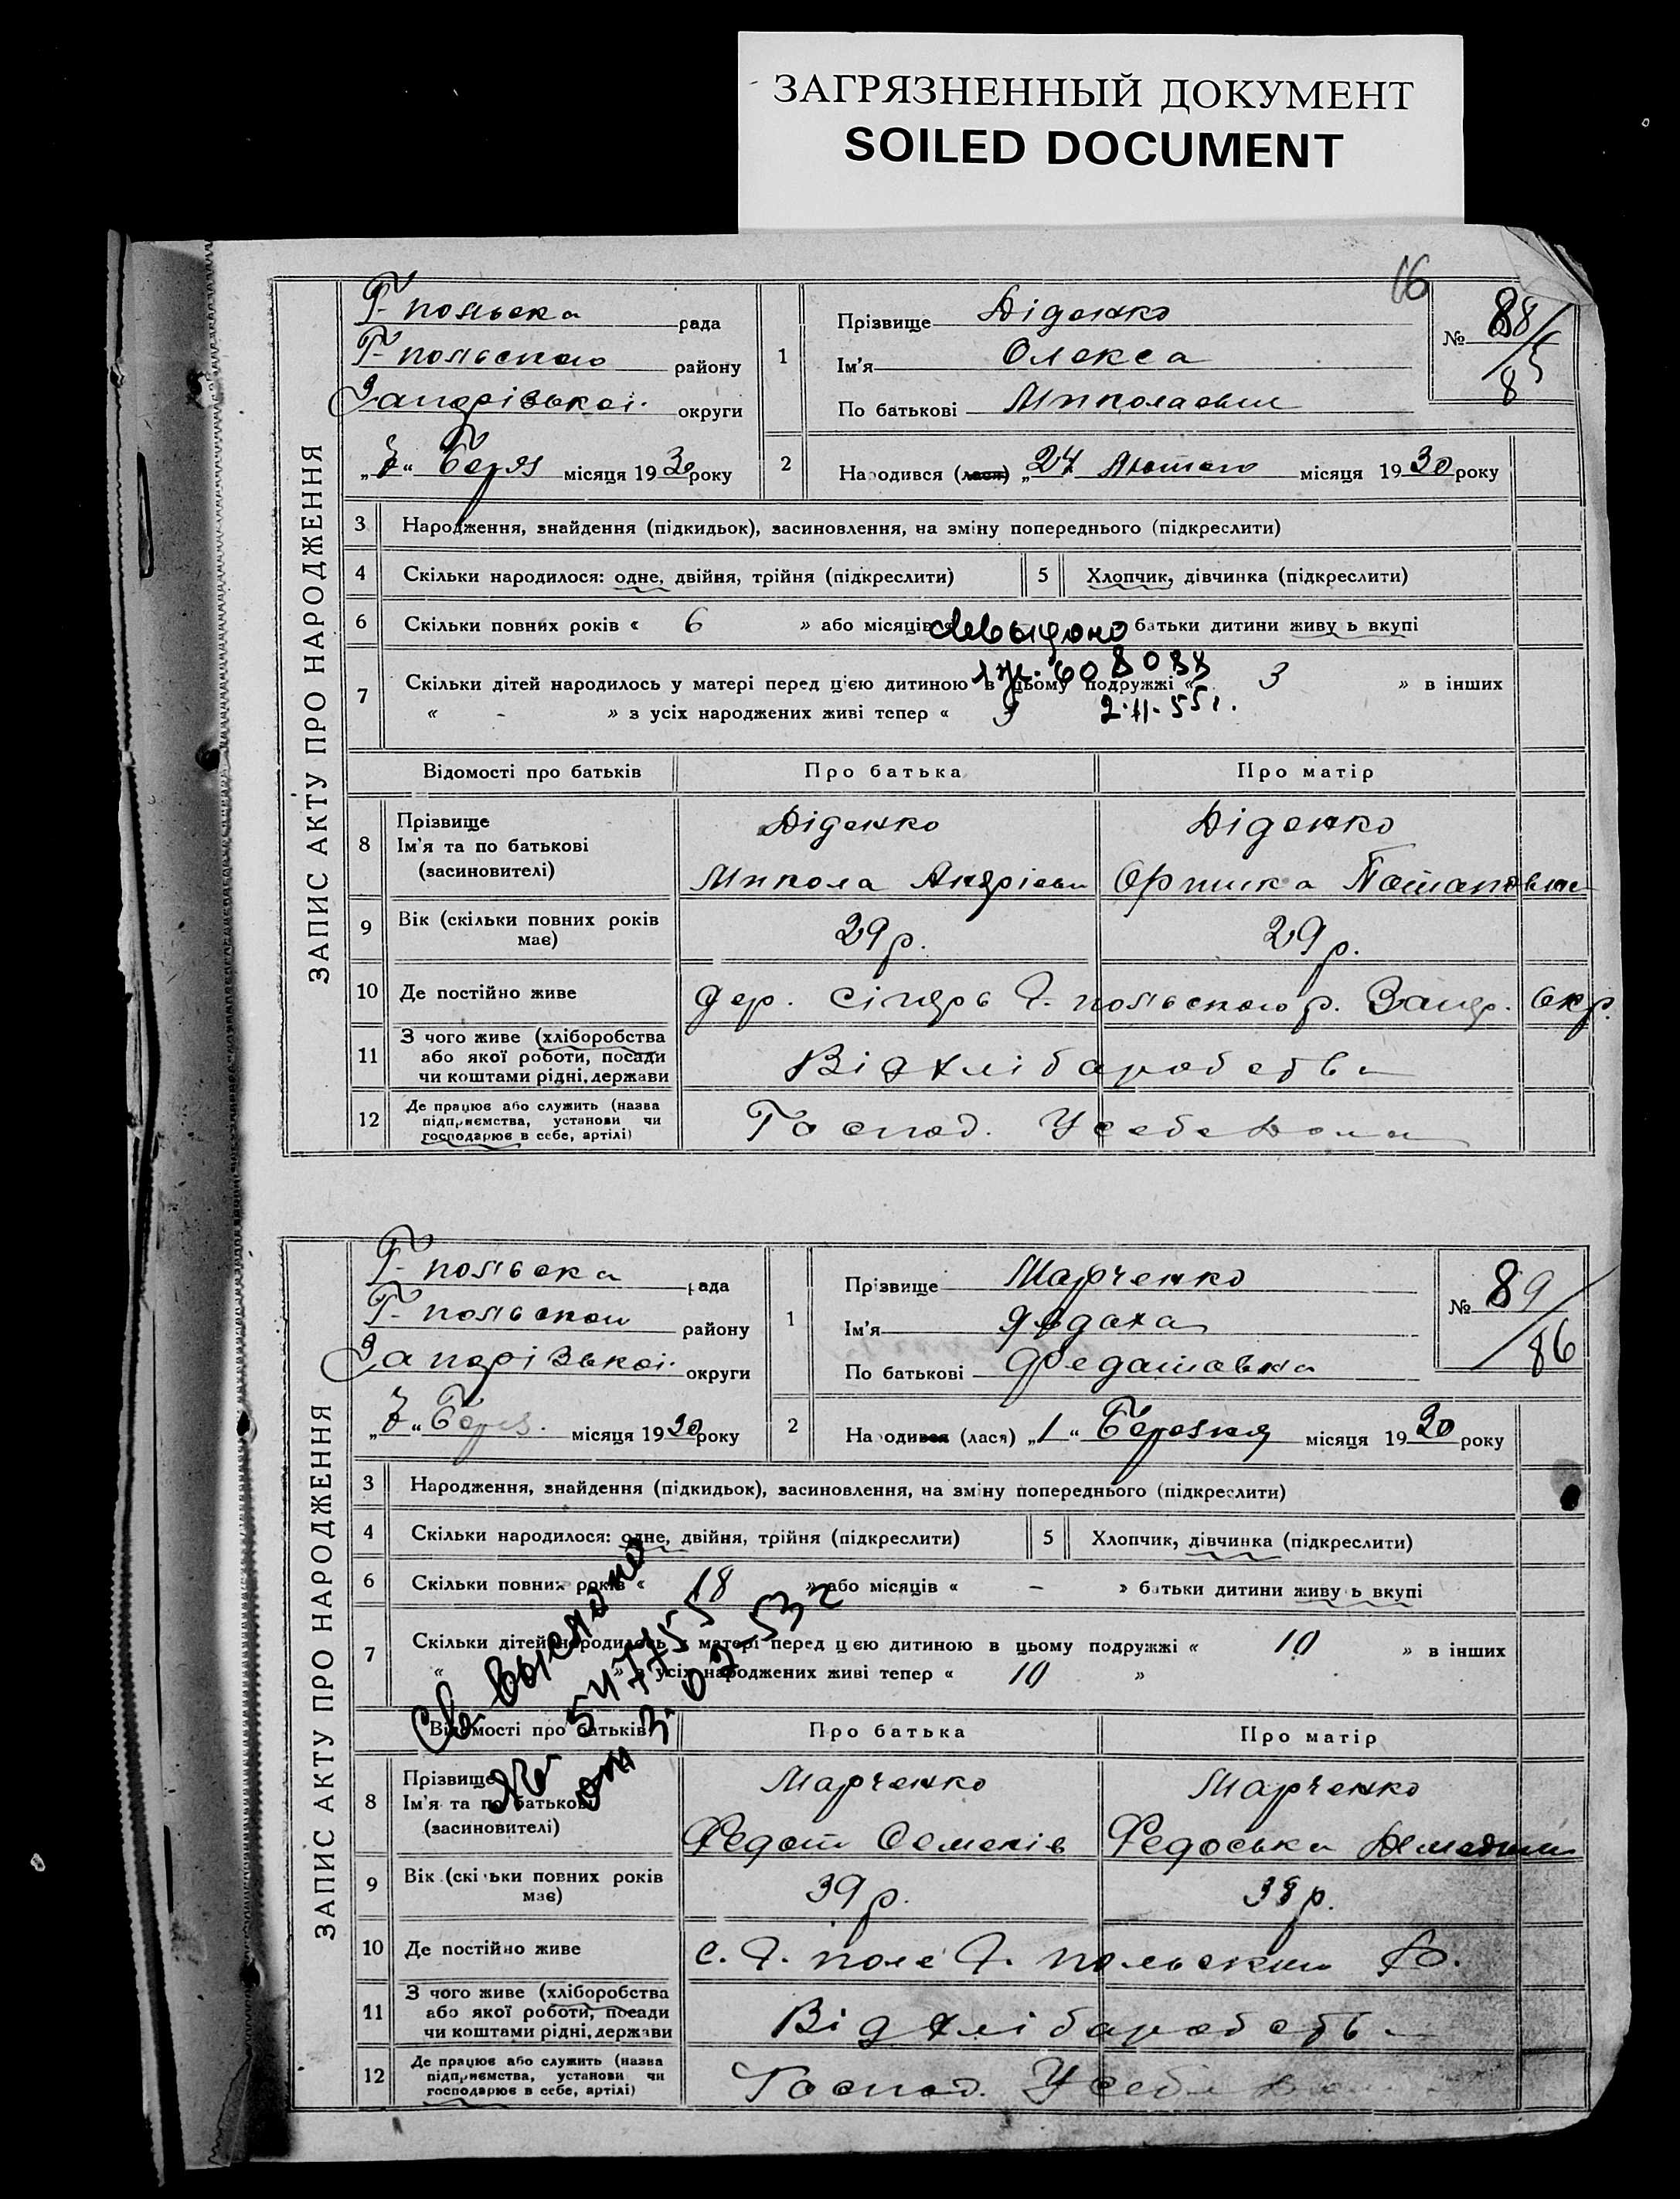 ЗАГРЯЗНЕННЫЙ ДОКУМЕНТ
SOILED DOCUMENT
16
ЗАПИС АКТУ ПРО НАРОДЖЕННЯ
Г-польска рада
Г-польского району
Запорізької округи
„7“ Берез місяця 1930 року
1
Прізвище Діденко
Ім'я Олекса
По батькові Миколаєвич
№ 88/85
2
Народився (лася) „27 Лютого місяця 1930 року
3 Народження, знайдення (підкидьок), засиновлення, на зміну попереднього (підкреслити)
4 Скільки народилося: одне, двійня, трійня (підкреслити)
5 Хлопчик, дівчинка (підкреслити)
6 Скільки повних років « 6 » або місяців батьки дитини живуть вкупі
7 Скільки дітей народилось у матері перед цією дитиною в цьому подружжі « 3 » в інших
« - » з усіх народжених живі тепер « 3
2.II.55г.
Відомості про батьків
Про батька
Про матір
8 Прізвище
Ім'я та по батькові
(засиновителі)
Діденко
Микола Андрієви
Діденко
Оришка Потаповна
9 Вік (скільки повних років має)
29 р.
29 р.
10 Де постійно живе
дер. Г-польского р. Запор. Окр.
11 З чого живе (хліборобства
або якої роботи, посади
чи коштами рідні, держави
Від хліборобства
12 Де працює або служить (назва
підприємства, установи чи
господарює в себе, артілі)
Господ. У себе дома
ЗАПИС АКТУ ПРО НАРОДЖЕННЯ
Г-польска рада
Г-польского району
Запорізької округи
„7“ Берез. місяця 1930 року
1
Прізвище Марченко
Ім'я
По батькові Федотовна
№ 89/86
2
Народився (лася) „1“ Березня місяця 1930 року
3 Народження, знайдення (підкидьок), засиновлення, на зміну попереднього (підкреслити)
4 Скільки народилося: одне, двійня, трійня (підкреслити)
5 Хлопчик, дівчинка (підкреслити)
6 Скільки повних років « 18 » або місяців « - » батьки дитини живуть вкупі
7 Скільки дітей народилось у матері перед цією дитиною в цьому подружжі « 10 » в інших
« » з усіх народжених живі тепер « 10 »
Св. выслано
Відомості про батьків
Про батька
Про матір
8 Прізвище
Ім'я та по батькові
(засиновителі)
Марченко
Федот Семенів
Марченко
Федоська
9 Вік (скільки повних років має)
39 р.
38 р.
10 Де постійно живе
с. Г. поле Г. польский Р.
11 З чого живе (хліборобства
або якої роботи, посади
чи коштами рідні, держави
Від хліборобств
12 Де працює або служить (назва
підприємства, установи чи
господарює в себе, артілі)
Господ. У себе дома